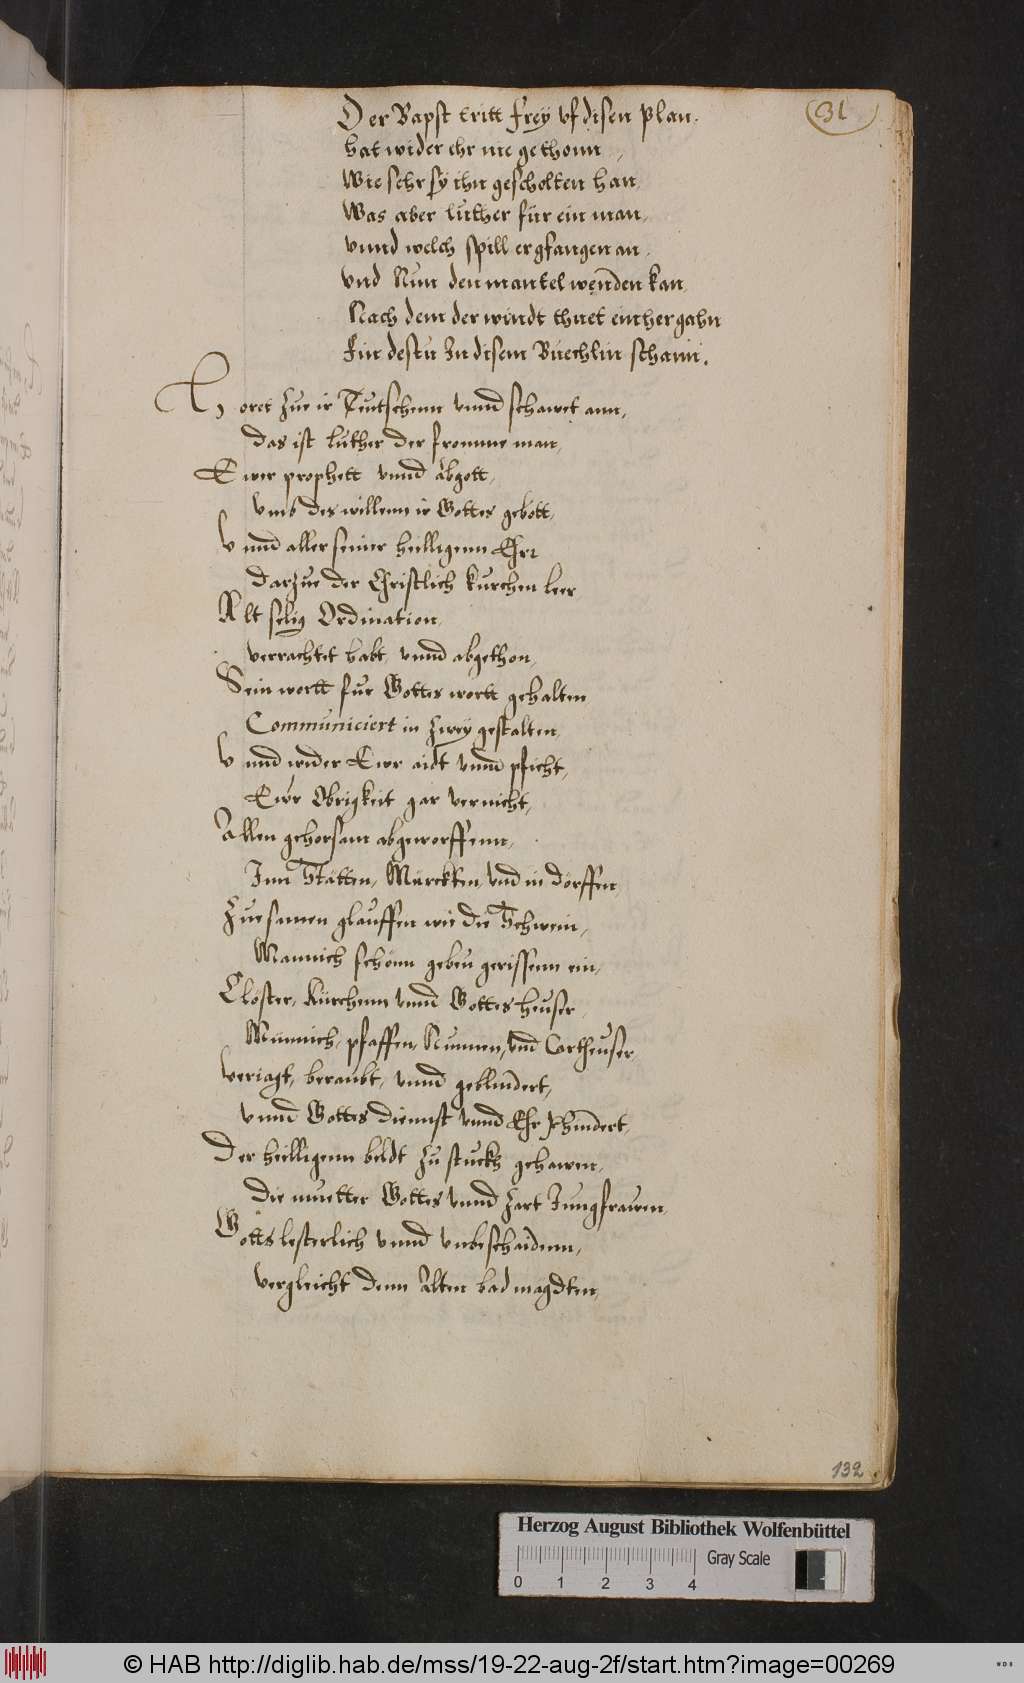 31
Der Bapst tritt frey vf disen plan.
hat wider ehr nie gethonn,
Wie sehr sy ihn gescholten han
Was aber luther für ein man,
vnnd welch spill er gfangen an,
vnd Nun den mantel wenden kan
Nach dem der windt thuet einher gahn
Findestu In disem Buechlin schann.
Horet zue ir Teutschenn vnnd schawet ann,
das ist luther der fromme man,
Ewer prophett vnnd Abgott,
vmb des willenn ir Gottes gebott,
Vnnd aller seiner heilligenn Ehr
darzue der Christlich kurchen leer
Alt selig Ordination,
verrachtet habt, vnnd abgethon,
Sein wortt fur Gottes wortt gehalten
Communiciert in zwey gestalten,
Vnnd wider Ewr aidt vnnd pflicht,
Ewr Obrigkeit gar vernicht,
Allen gehorsam abgeworffenn,
Inn Stätten, Märckten, vnd in dörffen
Zuesamen glauffen wie die Schwein,
Mannich schönn gebeu gerissenn ein,
Clöster, Kürchenn vnnd Gottesheuser,
Münnich, pfaffen, Nunnen, vnd Cartheuser,
Veriagt, beraubt, vnnd geblindert,
vnnd Gottes diennst vnnd Ehr Zhindert,
Der heilligenn bildt zu stuckh gehawen,
die muetter Gottes vnnd zart Jungfrawen,
Gotts lesterlich vnnd vnbeschaidenn,
vergleicht denn Alten bad magdten,
132
Herzog August Bibliothek Wolfenbüttel
Gray Scale
0 1 2 3 4
© HAB http://diglib.hab.de/mss/19-22-aug-2f/start.htm?image=00269